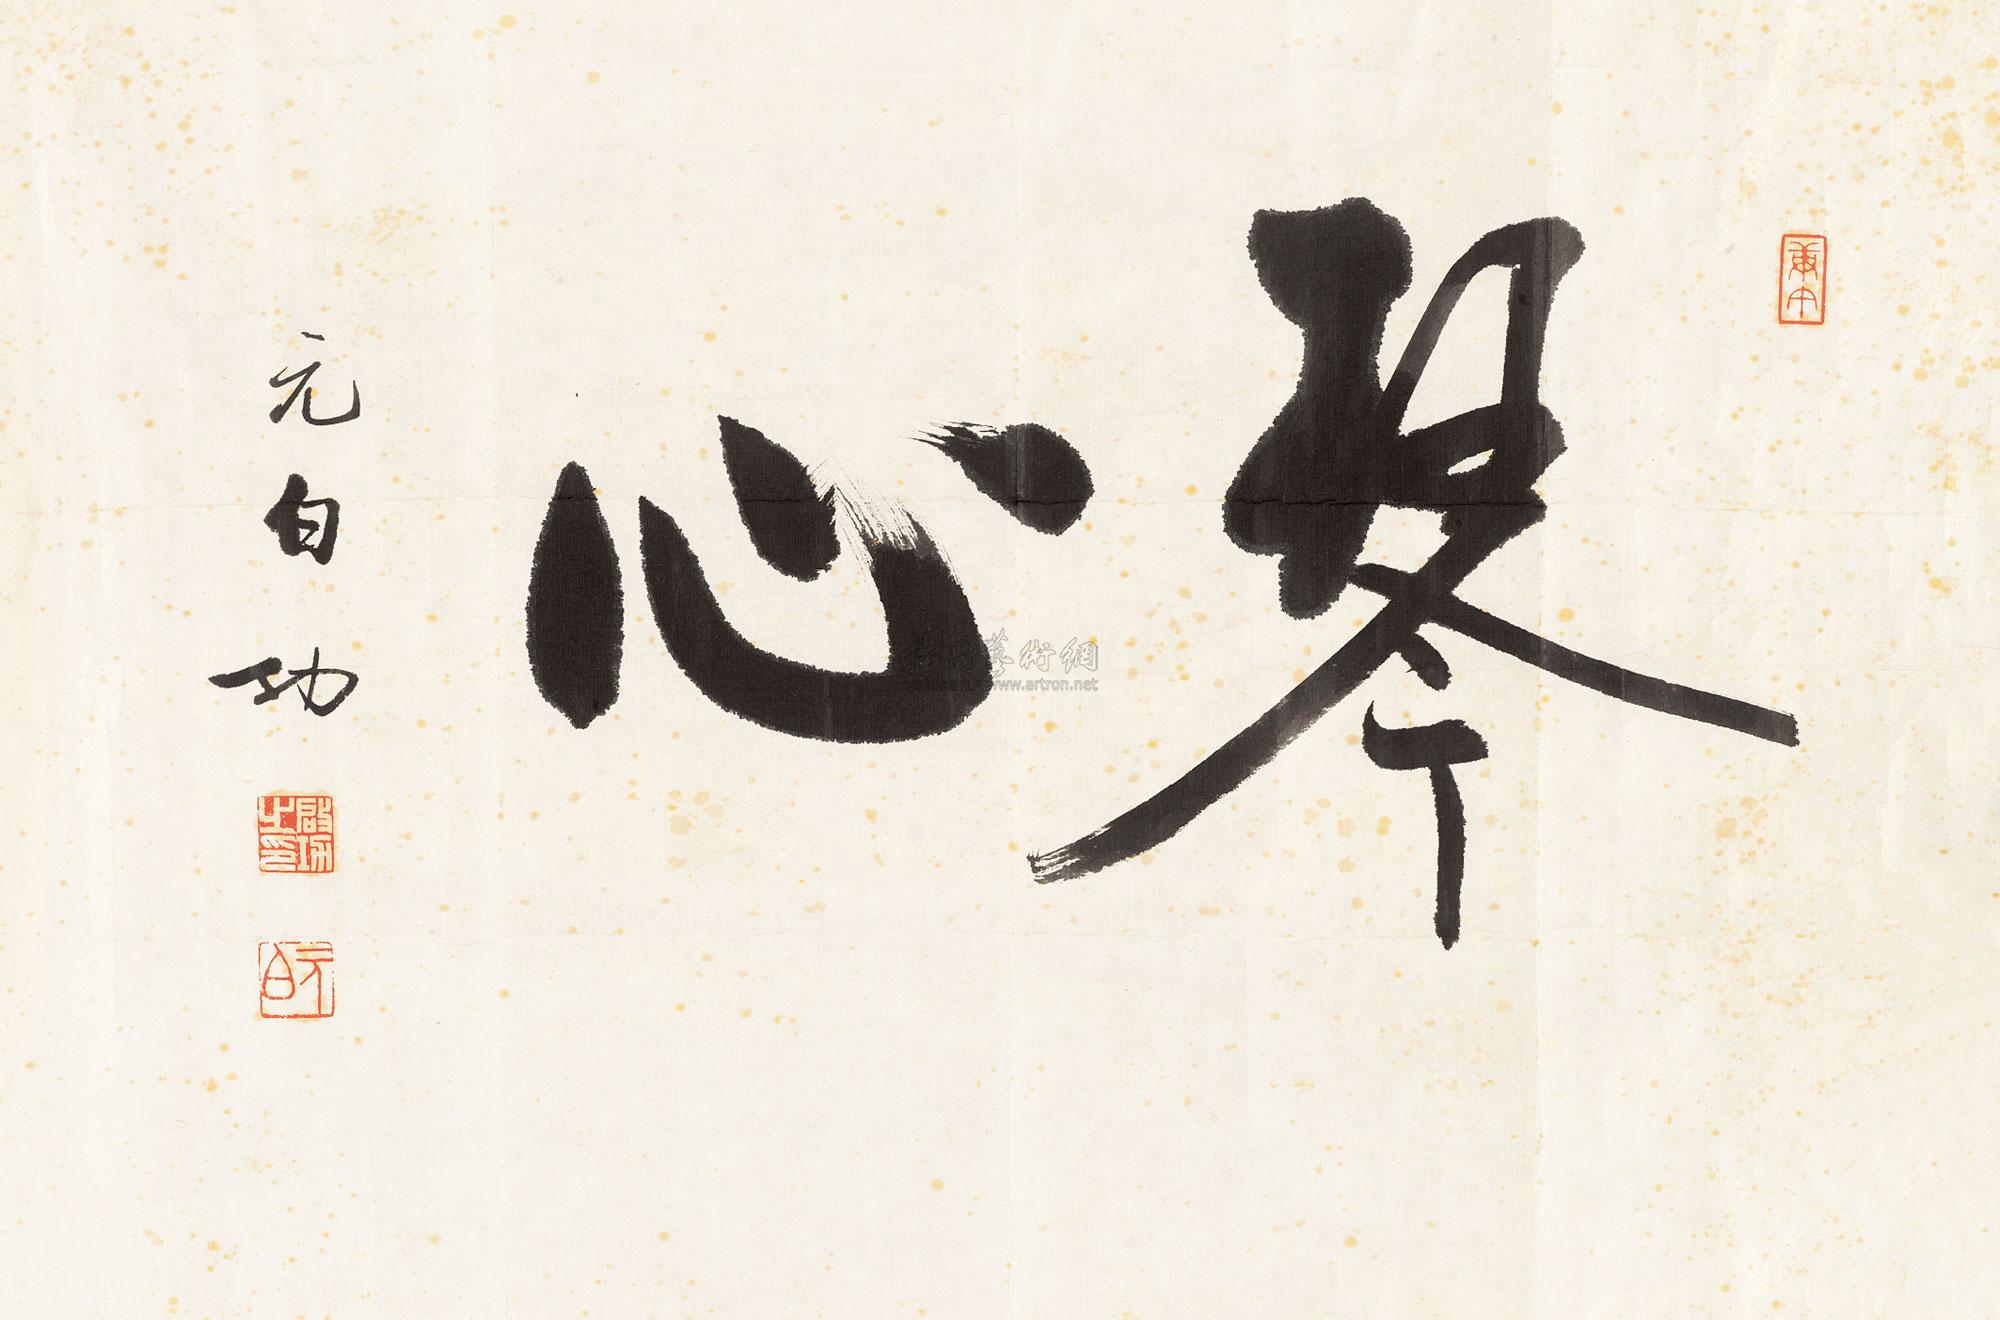 琴心
元白功
啟功之印
元白
藝術網
www.artron.net